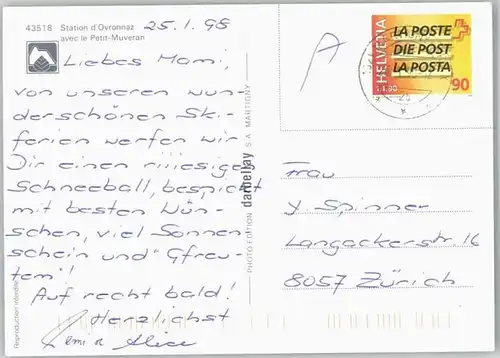 43518 Station d'Ovronnaz
avec le Petit-Muveran
25.1.98
Liebes Momi,
von unseren wun-
derschönen Ski-
ferien werfen wir
Dir einen riiiesigen
Schneeball, bespickt
mit besten Wün-
schen, viel Sonnen-
schein und "Gfreu-
tem"!
Auf recht bald!
Herzlichst
Alice
Reproduction interdite
PHOTO EDITION darbellay S.A. MARTIGNY
A
HELVETIA
LA POSTE
DIE POST
LA POSTA
90
Frau
Y. Spinner
Langackerstr. 16
8057 Zürich